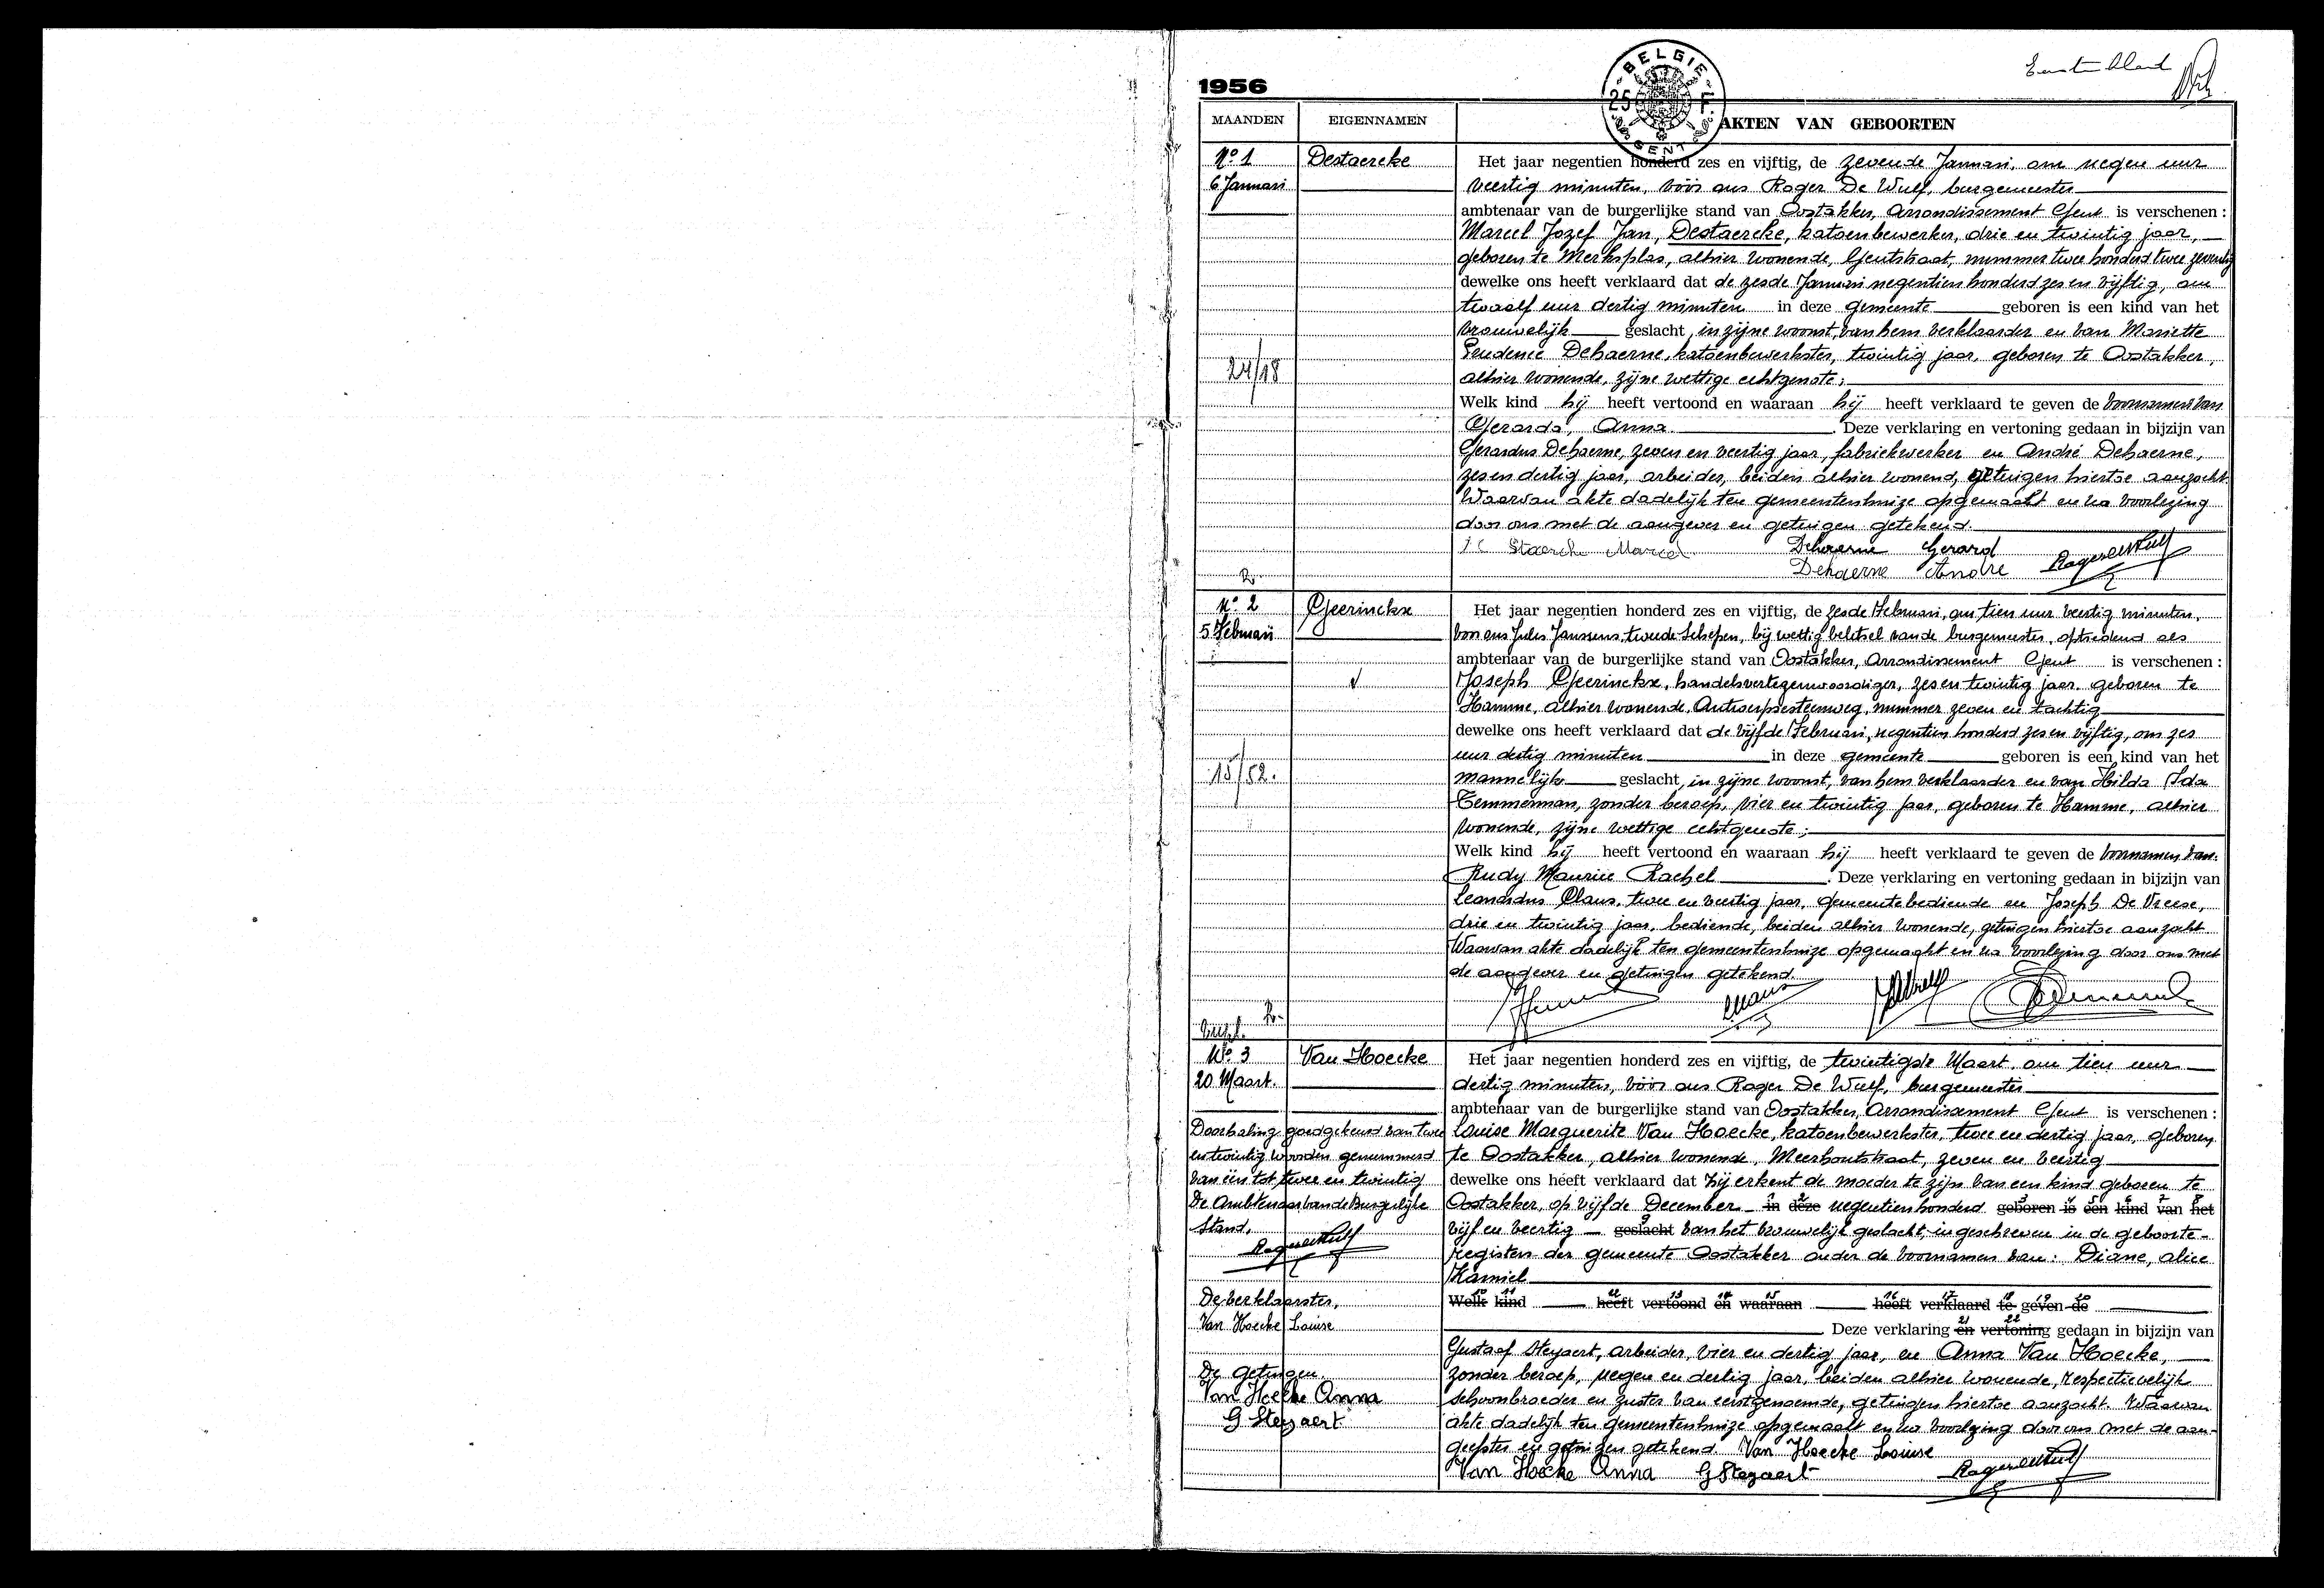 Eerste blad
1956
BELGIE
25 F.
GENT
MAANDEN EIGENNAMEN AKTEN VAN GEBOORTEN
No 1 Destaercke Het jaar negentien honderd zes en vijftig, de zevende Januari, om negen uur
6 Januari veertig minuten, vóór ons Roger De Wulf, burgemeester
ambtenaar van de burgerlijke stand van Oostakker, Arrondissement Gent is verschenen :
Marcel Jozef Jan, Destaercke, katoenbewerker, drie en twintig jaar,
geboren te Merksplas, alhier wonende, Gentstraat, nummer twee honderd twee zeventig
dewelke ons heeft verklaard dat de zesde Januari negentien honderd zes en vijftig, om
twaalf uur dertig minuten in deze gemeente geboren is een kind van het
vrouwelijk geslacht, in zijne woonst, van hem verklaarder en van Mariette
Prudence Dehaerne, katoenbewerkster, twintig jaar, geboren te Oostakker,
24/18
alhier wonende, zijne wettige echtgenote;
Welk kind hij heeft vertoond en waaraan hij heeft verklaard te geven de voornamen van
Gerarda, Anna. Deze verklaring en vertoning gedaan in bijzijn van
Gerardus Dehaerne, zeven en veertig jaar, fabriekwerker en André Dehaerne,
zes en dertig jaar, arbeider, beiden alhier wonend, getuigen hiertoe aanzocht.
Waarvan akte dadelijk ten gemeentenhuize opgemaakt en na voorlezing
door ons met de aangever en getuigen getekend.
Staercke Marcel Dehaerne Gerard
Dehaerne Andre Roger De Wulf
No 2 Geerinckx Het jaar negentien honderd zes en vijftig, de zesde Februari, om tien uur veertig minuten,
5 Februari voor ons Jules Janssens, tweede Schepen, bij wettig beletsel van de burgemeester, optredend als
ambtenaar van de burgerlijke stand van Oostakker, Arrondissement Gent is verschenen :
Joseph Geerinckx, handelsvertegenwoordiger, zes en twintig jaar, geboren te
Hamme, alhier wonende, Antwerpsesteenweg, nummer zeven en tachtig
dewelke ons heeft verklaard dat de vijfde Februari, negentien honderd zes en vijftig, om zes
uur dertig minuten in deze gemeente geboren is een kind van het
15/52. mannelijk geslacht, in zijne woonst, van hem verklaarder en van Hilda Ida
Temmerman, zonder beroep, vier en twintig jaar, geboren te Hamme, alhier
wonende, zijne wettige echtgenote;
Welk kind hij heeft vertoond en waaraan hij heeft verklaard te geven de voornamen van.
Rudy Maurice Rachel. Deze verklaring en vertoning gedaan in bijzijn van
Leonardus Claus, twee en veertig jaar, gemeentebediende en Joseph De Vreese,
drie en twintig jaar, bediende, beiden alhier wonende, getuigen hiertoe aanzocht
Waarvan akte dadelijk ten gemeentenhuize opgemaakt en na voorlezing door ons met
de aangever en getuigen getekend.
No 3 Van Hoecke Het jaar negentien honderd zes en vijftig, de twintigste Maart, om tien uur
20 Maart. dertig minuten, vóór ons Roger De Wulf, burgemeester
ambtenaar van de burgerlijke stand van Oostakker, Arrondissement Gent is verschenen :
Doorhaling goedgekeurd van twee Louise Marguerite Van Hoecke, katoenbewerkster, twee en dertig jaar, geboren
en twintig woorden genummerd te Oostakker, alhier wonende, Meerhoutstraat, zeven en veertig
van één tot twee en twintig dewelke ons heeft verklaard dat zij erkent de moeder te zijn van een kind geboren te
De Ambtenaar van de Burgerlijke Oostakker, op vijfde December in deze negentienhonderd geboren is een kind van het
Stand, vijf en veertig geslacht van het vrouwelijk geslacht, ingeschreven in de geboorte-
Roger De Wulf registers der gemeente Oostakker onder de voornamen van: Diane, Alice
Kamiel
De verklaarster, Welk kind heeft vertoond en waaraan heeft verklaard te geven de
Van Hoecke Louise
Deze verklaring en vertoning gedaan in bijzijn van
Gustaaf Steyaert, arbeider, vier en dertig jaar, en Anna Van Hoecke,
De getuigen. zonder beroep, negen en dertig jaar, beiden alhier wonende, respectievelijk
Van Hoecke Anna schoonbroeder en zuster van eerstgenoemde, getuigen hiertoe aanzocht. Waarvan
G Steyaert akte dadelijk ten gemeentenhuize opgemaakt en na voorlezing door ons met de aan-
geefster en getuigen getekend. Van Hoecke Louise
Van Hoecke Anna G Steyaert Roger De Wulf